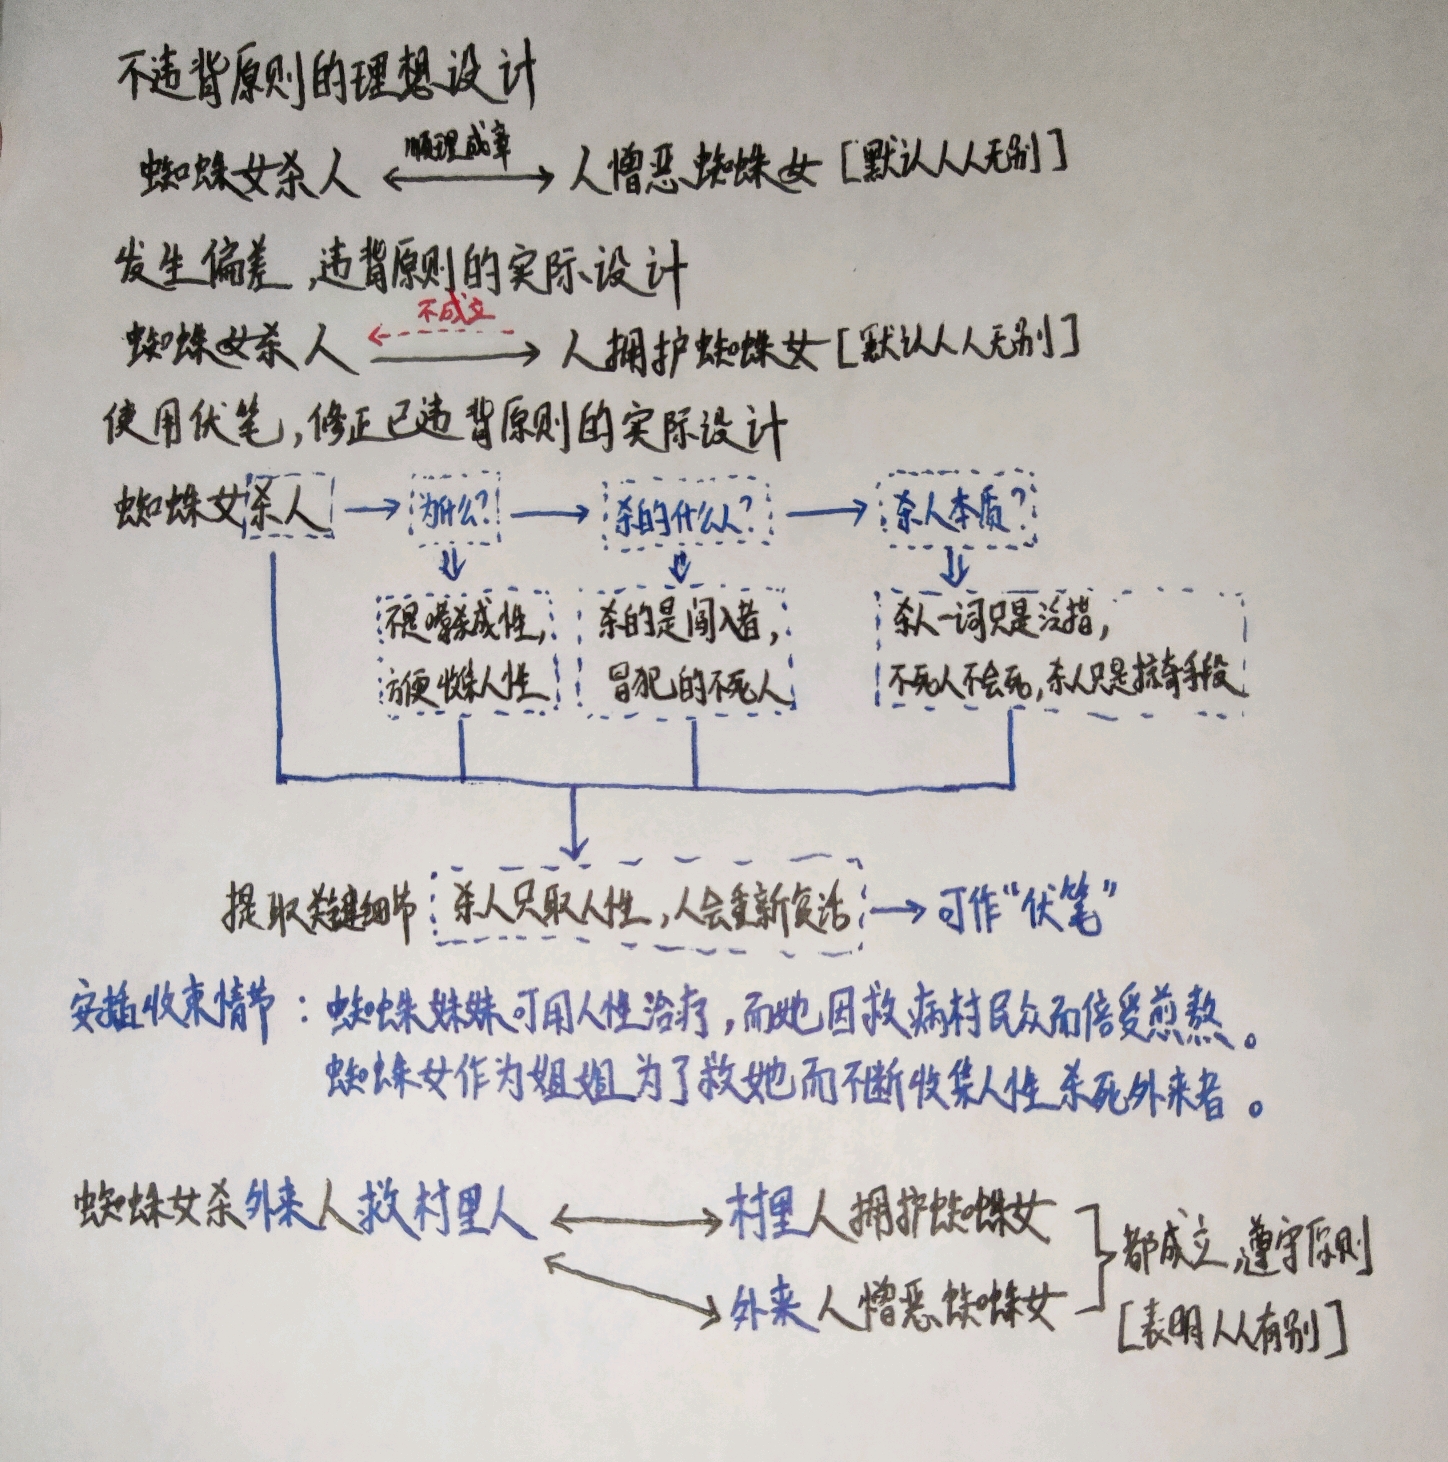 不违背原则的理想设计
顺理成章
蜘蛛女杀人 人憎恶蜘蛛女[默认人人无别]
发生偏差,违背原则的实际设计
不成立
蜘蛛女杀人 人拥护蜘蛛女[默认人人无别]
使用伏笔,修正已违背原则的实际设计
蜘蛛女杀人 为什么? 杀的什么人? 杀人本质?
不是嗜杀成性, 杀的是闯入者, 杀人一词只是泛指,
方便收集人性 冒犯的不死人 不死人不会死,杀人只是掠夺手段
提取关键细节 杀人只取人性,人会重新复活 可作“伏笔”
安插收束情节: 蜘蛛妹妹可用人性治疗,而她因救病村民众而倍受煎熬。
蜘蛛女作为姐姐为了救她而不断收集人性杀死外来者。
蜘蛛女杀外来人救村里人 村里人拥护蜘蛛女
都成立,遵守原则
外来人憎恶蜘蛛女
[表明人人有别]